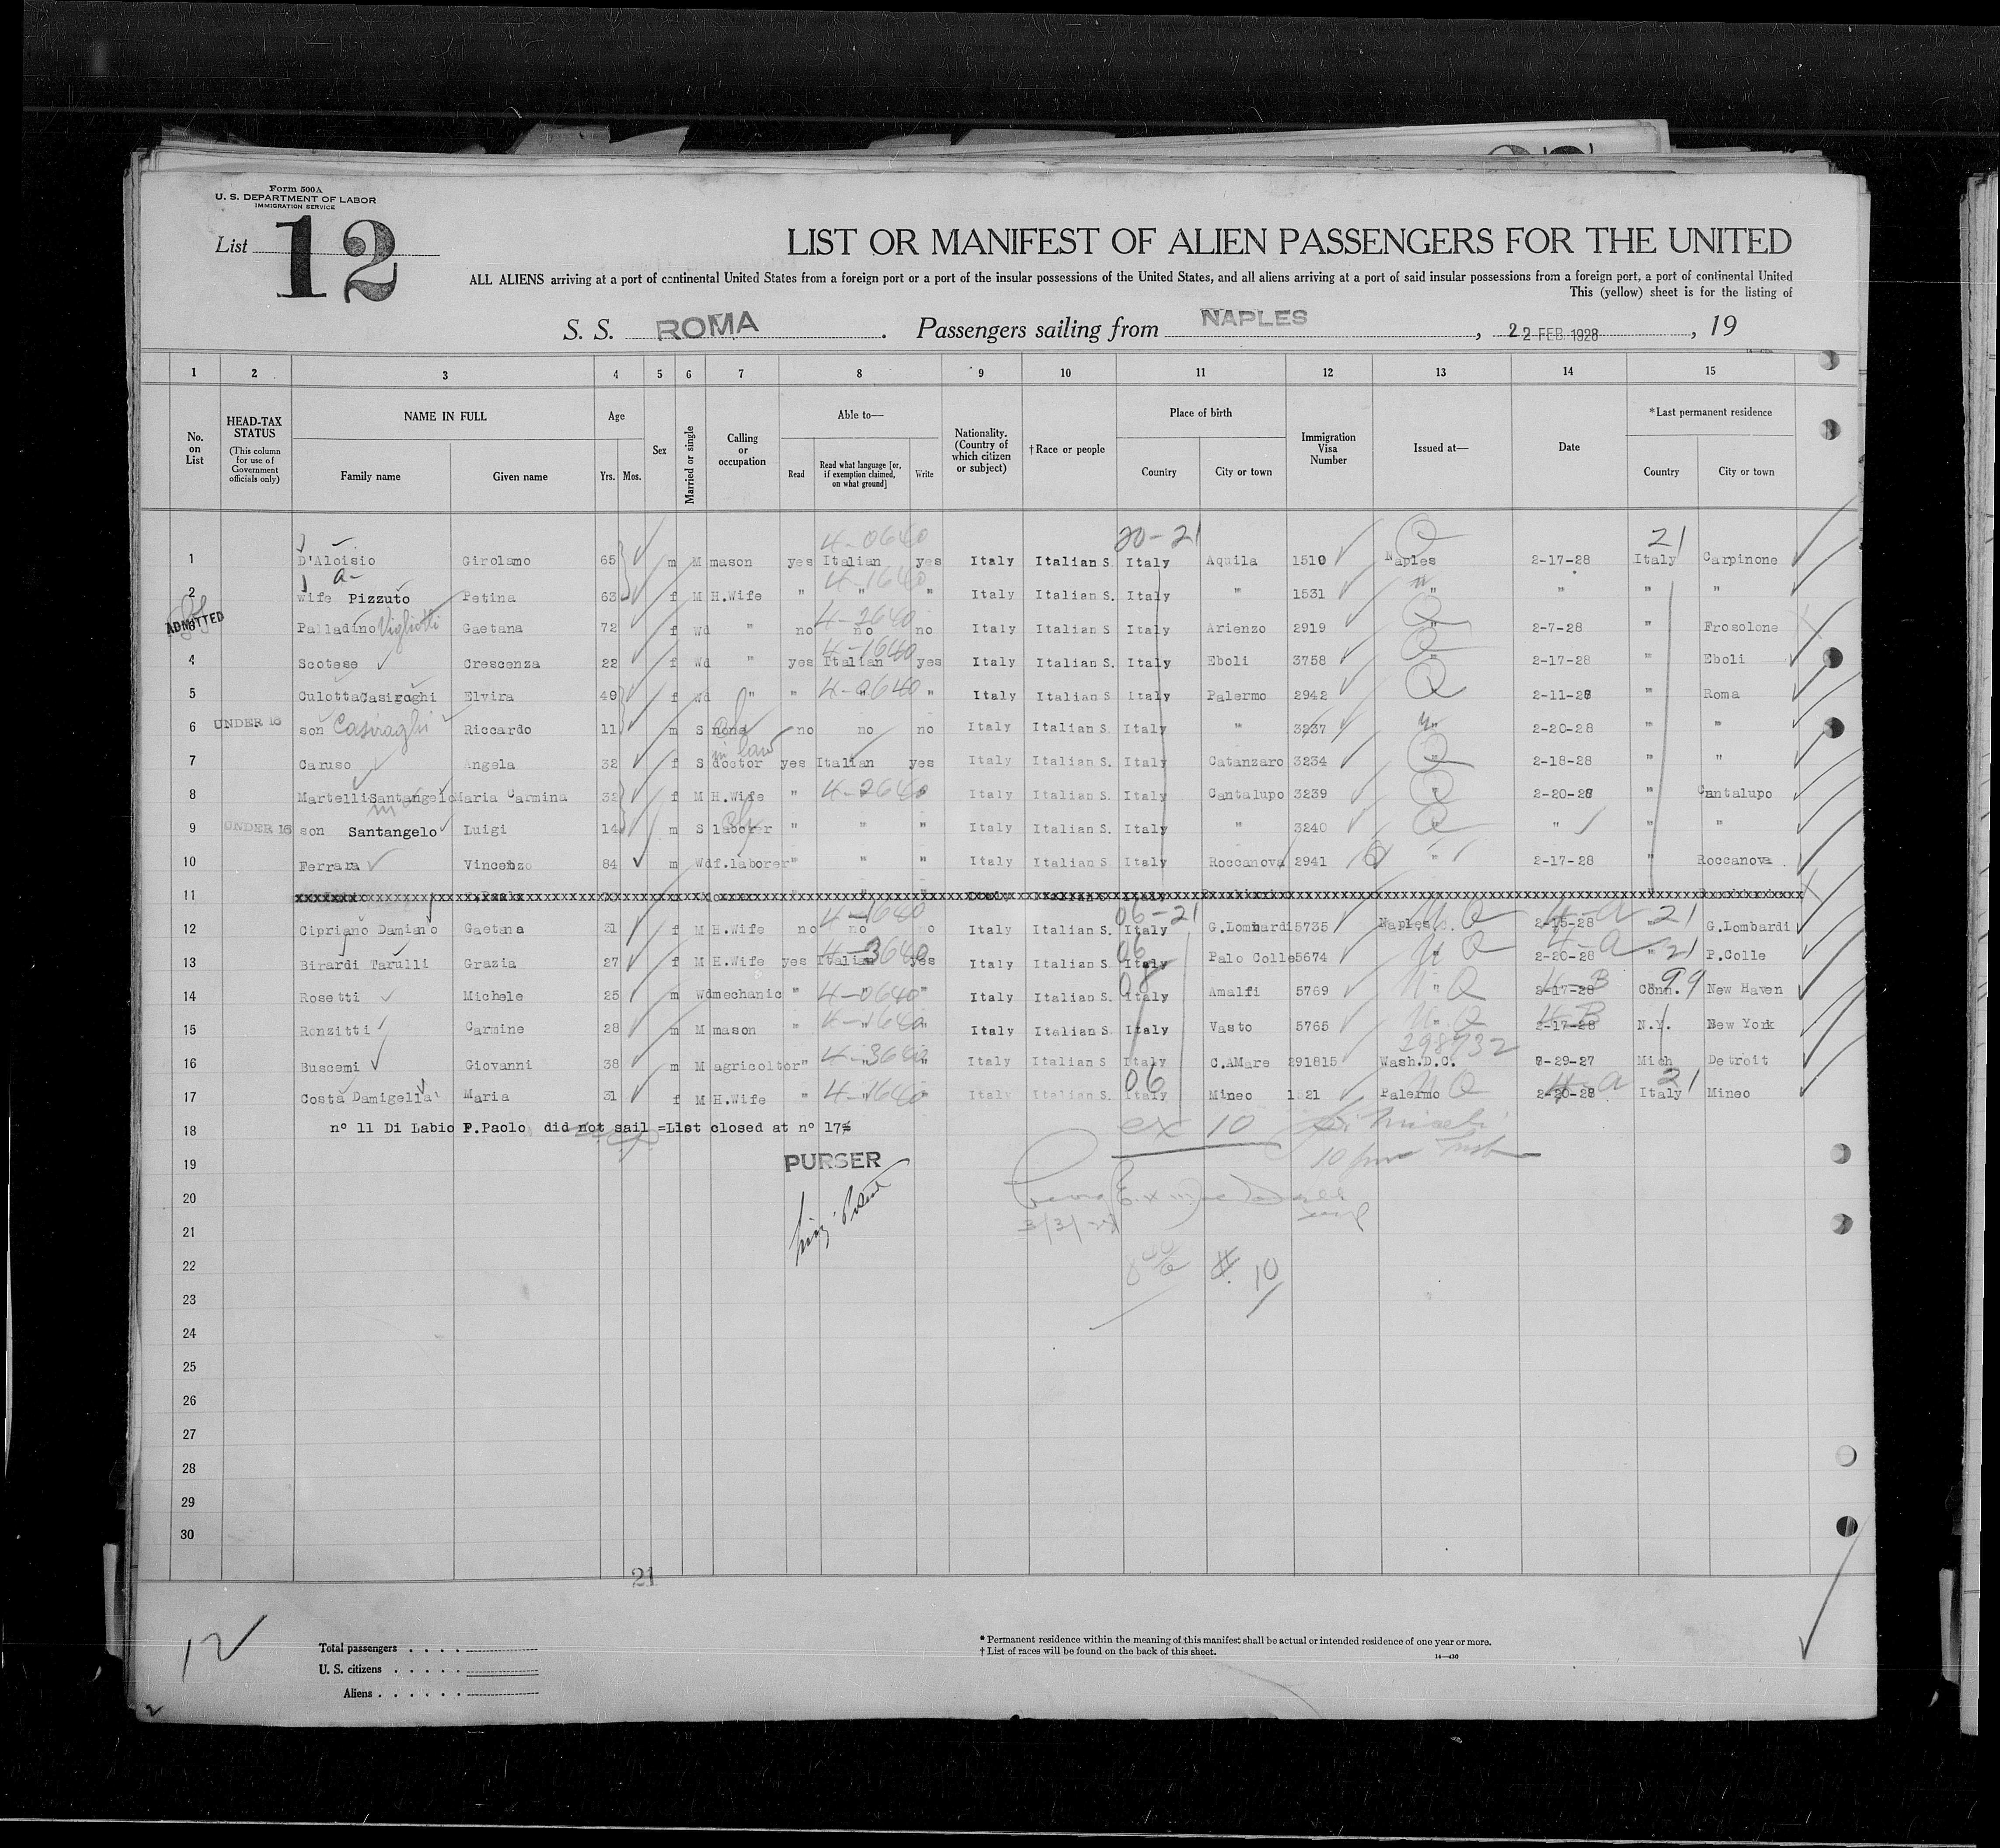 Form 500A
U. S. DEPARTMENT OF LABOR
IMMIGRATION SERVICE
List 12
LIST OR MANIFEST OF ALIEN PASSENGERS FOR THE UNITED
ALL ALIENS arriving at a port of continental United States from a foreign port or a port of the insular possessions of the United States, and all aliens arriving at a port of said insular possessions from a foreign port, a port of continental United
This (yellow) sheet is for the listing of
S. S. ROMA. Passengers sailing from NAPLES, 22 FEB 1928, 19
1 2 3 4 5 6 7 8 9 10 11 12 13 14 15
No. on List
HEAD-TAX STATUS (This column for use of Government officials only)
NAME IN FULL Family name Given name
Age Yrs. Mos.
Sex
Married or single
Calling or occupation
Able to— Read Read what language [or, if exemption claimed, on what ground] Write
Nationality. (Country of which citizen or subject)
†Race or people
Place of birth Country City or town
Immigration Visa Number
Issued at—
Date
*Last permanent residence Country City or town
4-0640 20-21 21
1 D'Aloisio Girolamo 65 m M mason yes Italian yes Italy Italian S. Italy Aquila 1510 Naples 2-17-28 Italy Carpinone
4-1640
2 wife Pizzuto Petina 63 f M H.Wife " " " Italy Italian S. Italy " 1531 " " " "
4-2640
ADMITTED 3 Palladino Vigliotti Gaetana 72 f Wd " no no no Italy Italian S Italy Arienzo 2919 " 2-7-28 " Frosolone
4-1640
4 Scotese Crescenza 22 f Wd " yes Italian yes Italy Italian S. Italy Eboli 3758 " 2-17-28 " Eboli
5 Culotta Casiraghi Elvira 40 f Wd " " 4-0640 " Italy Italian S Italy Palermo 2942 " 2-11-28 " Roma
6 UNDER 16 son Casiraghi Riccardo 11 m S none no no no Italy Italian S. Italy " 3237 " 2-20-28 " "
in law
7 Caruso Angela 32 f S doctor yes Italian yes Italy Italian S. Italy Catanzaro 3234 " 2-18-28 " "
8 Martelli Santangelo Maria Carmina 32 f M H.Wife " 4-2640 Italy Italian S. Italy Cantalupo 3239 " 2-20-28 " Cantalupo
9 UNDER 16 son Santangelo Luigi 14 m S laborer " " " Italy Italian S. Italy " 3240 " " " "
10 Ferrara Vincenzo 84 m Wd f.laborer " " " Italy Italian S. Italy Roccanova 2941 " 2-17-28 " Roccanova
11
4-1640 06-21 4-a 21
12 Cipriano Damiano Gaetana 31 f M H.Wife no no no Italy Italian S. Italy G.Lombardi 5735 Naples 2-15-28 " G.Lombardi
4-3640 06 4-a 21
13 Birardi Tarulli Grazia 27 f M H.Wife yes Italian yes Italy Italian S. Italy Palo Colle 5674 " 2-20-28 " P.Colle
08 4-B 99
14 Rosetti Michele 25 m Wd mechanic " 4-0640 " Italy Italian S. Italy Amalfi 5769 " 2-17-28 Conn. New Haven
4-B
15 Ronzitti Carmine 28 m M mason " 4-1640 " Italy Italian S. Italy Vasto 5765 " 2-17-28 N.Y. New York
4-3640 298732
16 Buscemi Giovanni 38 m M agricoltor " " " Italy Italian S Italy C.AMare 291815 Wash.D.C. 8-29-27 Mich Detroit
06 4-a 21
17 Costa Damigella Maria 31 f M H.Wife " 4-1640 " Italy Italian S. Italy Mineo 1821 Palermo 2-20-28 Italy Mineo
18 n° 11 Di Labio P.Paolo did not sail =List closed at n° 17=
ex 10
19 PURSER
20
21 3/3/-28
22 # 10
23
24
25
26
27
28
29
30
21
12
Total passengers
U. S. citizens
Aliens
* Permanent residence within the meaning of this manifest shall be actual or intended residence of one year or more.
† List of races will be found on the back of this sheet.
14—430